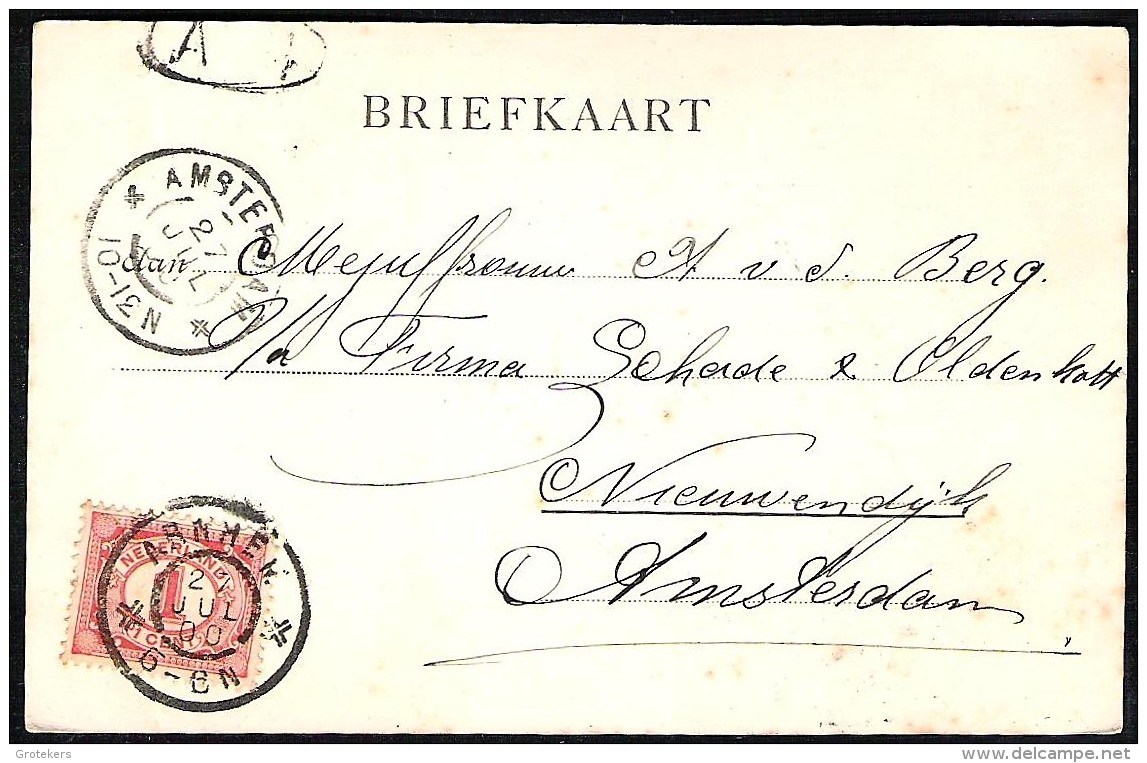 A
BRIEFKAART
AMSTERDAM
27
JUL
N31-10
Aan Mejuffrouw A v d. Berg.
p/a Firma Schade & Oldenkott
Nieuwendijk
Amsterdam
NEDERLAND
1
1 CENT
ARNHEM
2
JUL
00
6-8N
Grotekers
delcampe.net